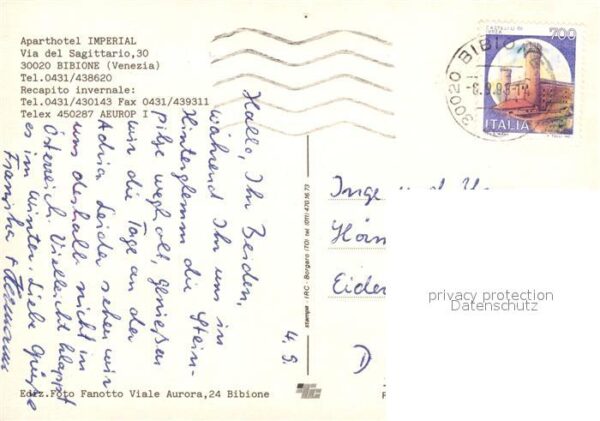 Aparthotel IMPERIAL
Via del Sagittario,30
30020 BIBIONE (Venezia)
Tel.0431/438620
Recapito invernale:
Tel.0431/430143 Fax 0431/439311
Telex 450287 AEUROP I
Hallo, Ihr Beiden,
während Ihr uns in
Hinterglemm die Stein-
pilze wegholt, genießen
wir die Tage an der
Adria. Leider sehen wir
uns deshalb nicht in
Österreich. Vielleicht klappt
es im Winter. Liebe Grüße
Franziska +
4. 9.
stampa - IRC - Borgaro (TO) tel. (011) 470.16.73
700
ITALIA
30020 BIBIONE
Inge
Eider
D
privacy protection
Datenschutz
Ediz.Foto Fanotto Viale Aurora,24 Bibione